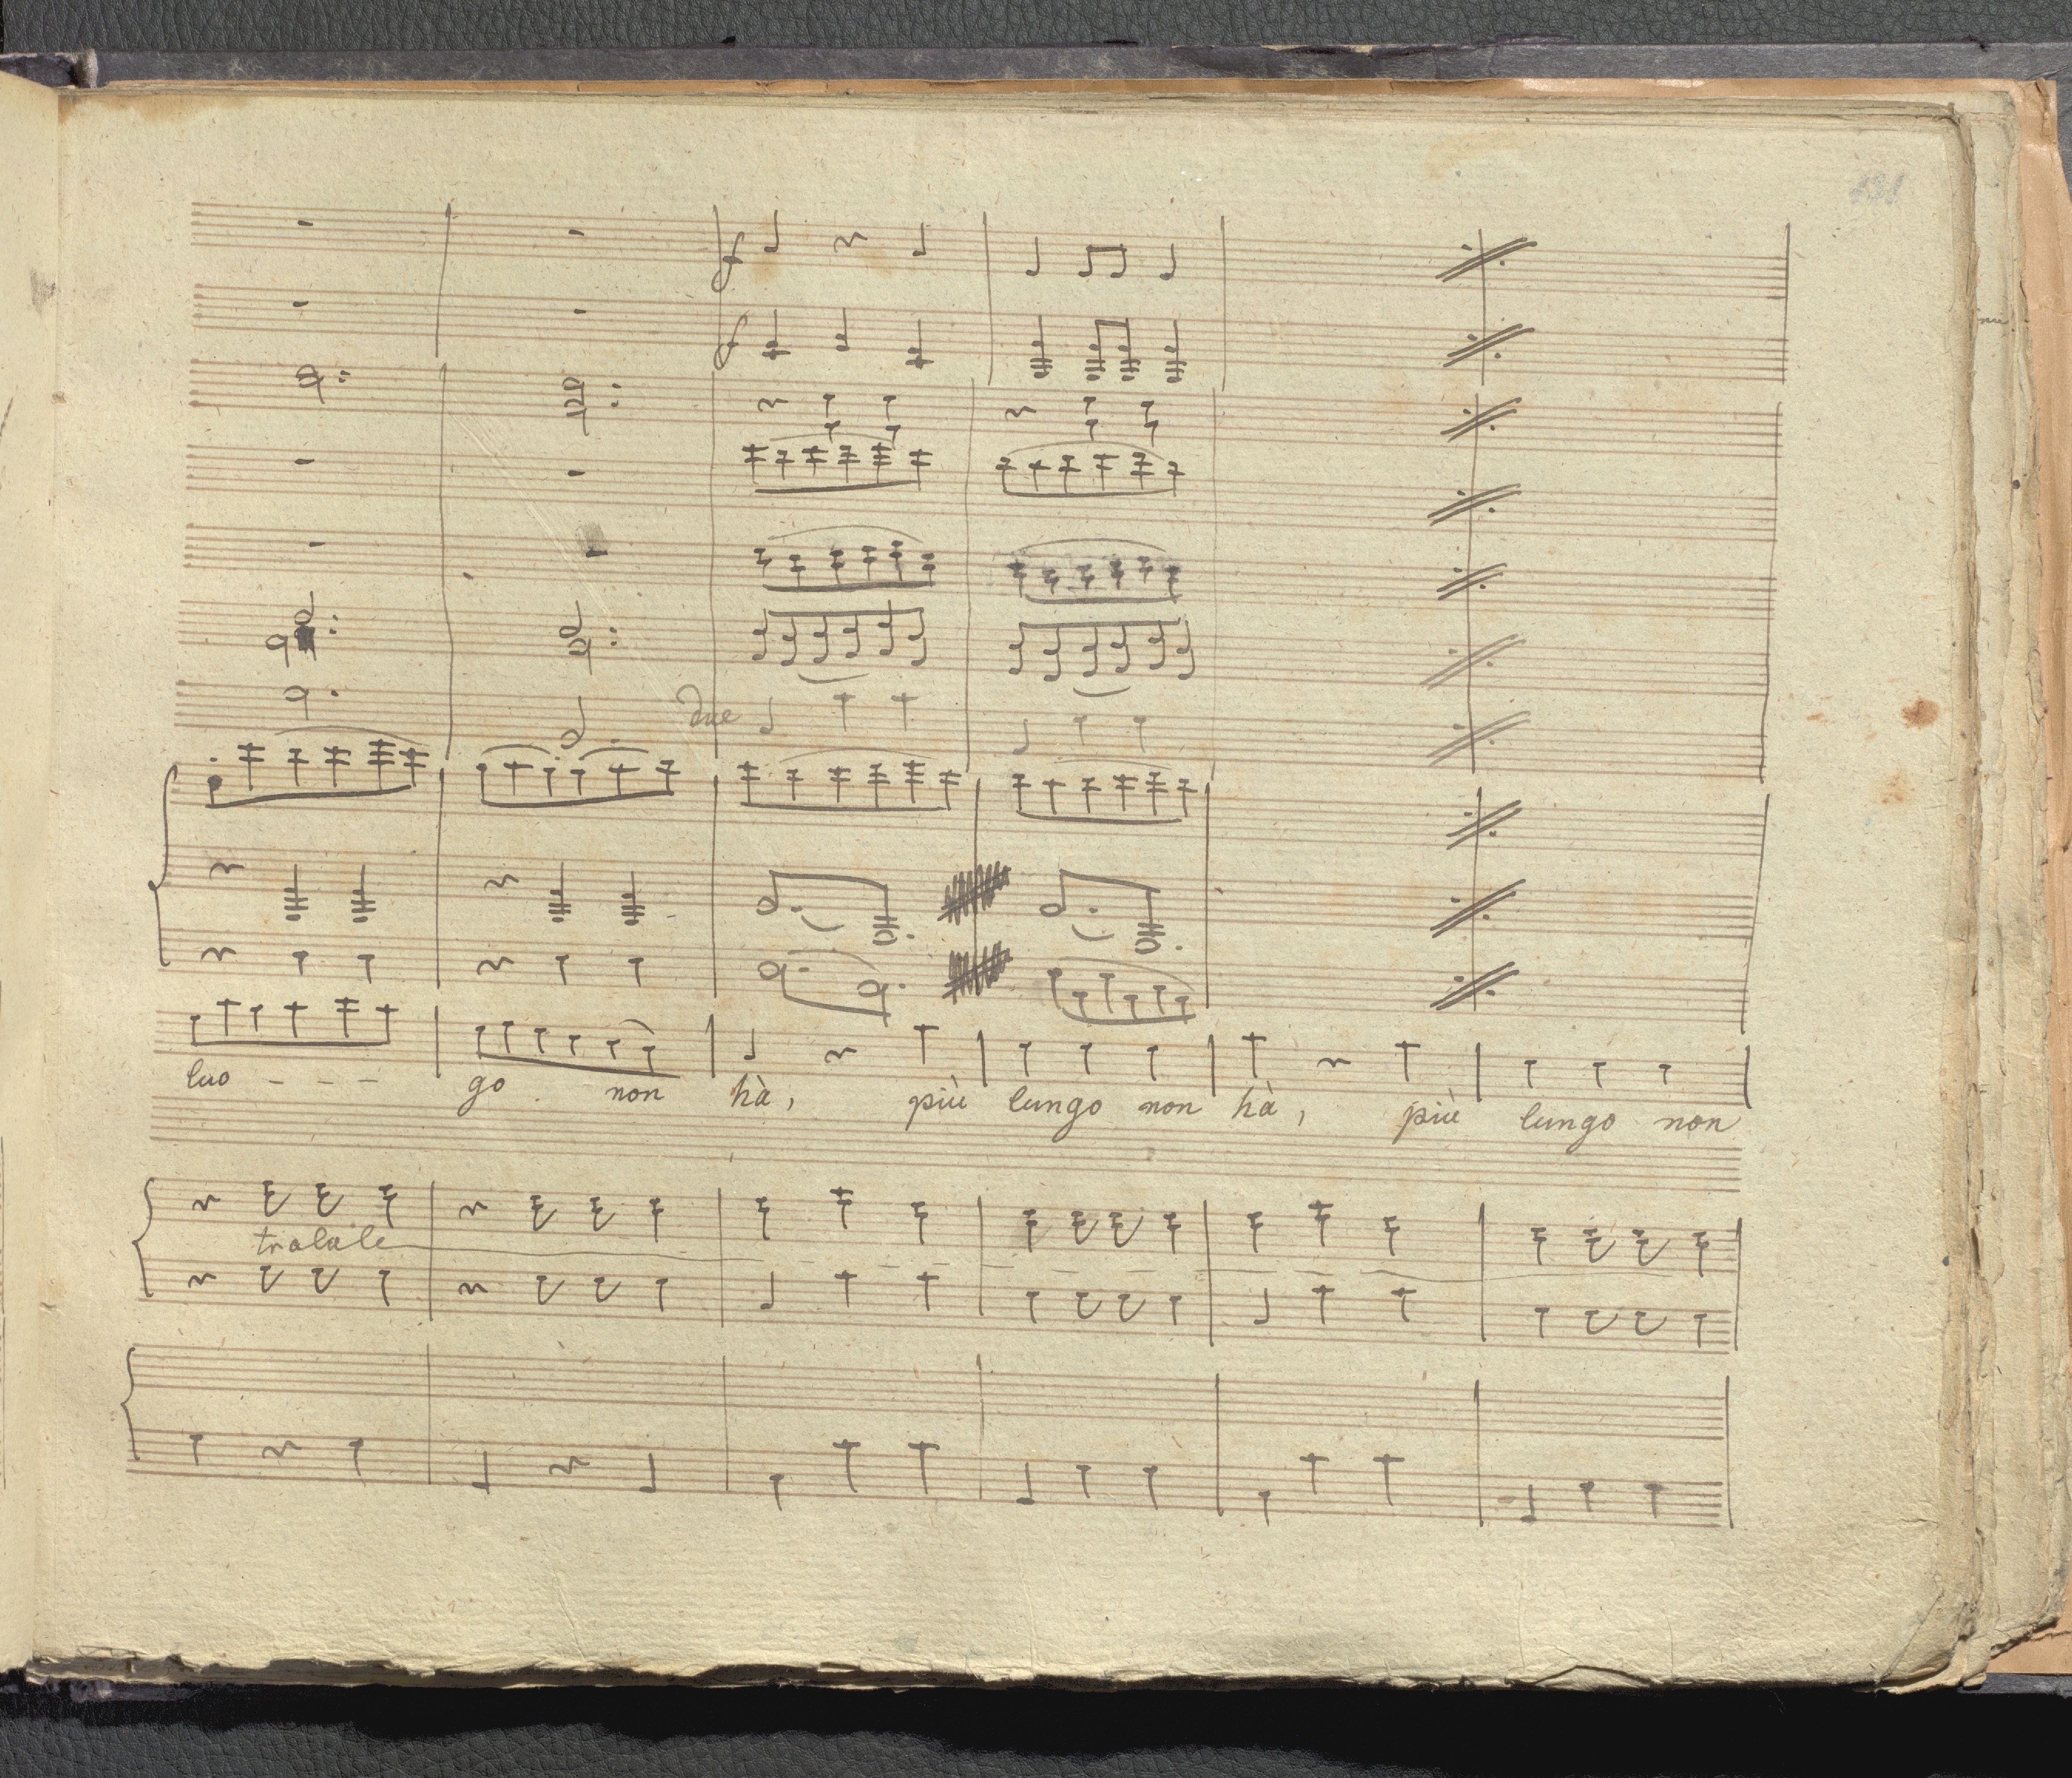 f
f
due
luo - - - go non hà, più lungo non hà, più lungo non
tralale